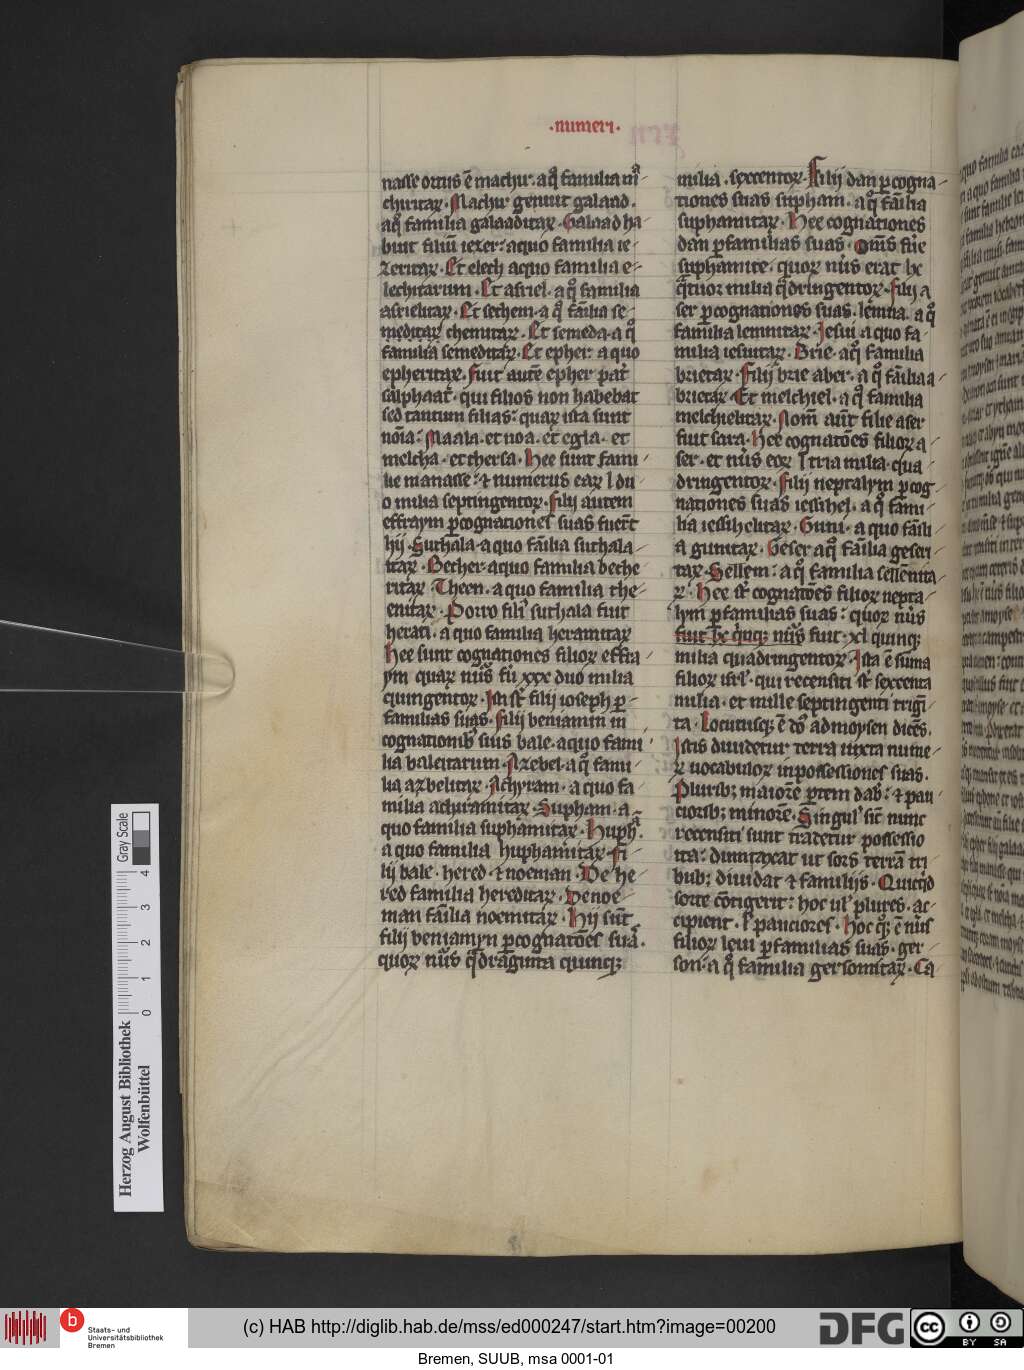 ·numeri·
nasse ortus ē machir. a q̊ familia m̊
chiritaꝝ. Machir genuit galaad.
a q̊ familia galaaditaꝝ. Galaad ha
buit filiū iezer: a quo familia ie
zeritaꝝ. Et elech a quo familia e
lechitarum. Et asriel. a q̊ familia
asrielitaꝝ. Et sechem. a q̊ fāilia se
meditaꝝ chemitaꝝ. Et semeda. a q̊
familia semeditaꝝ. Et epher. a quo
epheritaꝝ. fuit autē epher pat̄
salphaat. qui filios non habebat
sed tantum filias: quaꝝ ista sunt
noīa: Maala. et noa. et egla. et
melcha. et thersa. Hee sunt fami
lie manasse: ⁊ numerus eaꝝ l du
o milia septingentoꝝ. filij autem
effraym ꝑ cognationes suas fuer̄t
hij. Suthala. a quo fāilia suthala
itaꝝ. Becher. a quo familia beche
ritaꝝ. Theen. a quo familia the
enitaꝝ. Porro fili᷒ suthala fuit
heran. a quo familia heranitaꝝ
Hee sunt cognationes filioꝝ effra
ym quaꝝ nūs fū xxx duo milia
quingentoꝝ. Isti st̄ filij ioseph ꝑ
familias suas. filij beniamin in
cognationib᷒ suis bale. a quo fami
lia baleitarum. Azebel. a q̊ fami
lia azbelitaꝝ. Achyram. a quo fa
milia achiramitaꝝ. Supham. a
quo familia suphamitaꝝ. Huphā.
a quo familia huphamitaꝝ. fi
lij bale. hered. ⁊ noeman. De he
red familia hereditaꝝ. De noe
man fāilia noemitaꝝ. Hij sūt
filij beniamyn ꝑ cognatōes suā.
quoꝝ nūs q̊draginta quinqꝫ
milia. sexcentoꝝ. Filij dan ꝑ cogna
tiones suas supham. a q̊ fāilia
suphamitaꝝ. Hee cognationes
dan ꝑ familias suas. Om̄s fūe
suphamite. quoꝝ nūs erat hc
q̄tuor milia q̊dringentoꝝ. filij a
ser ꝑ cognationes suas. iemna. a q̊
familia iemnitaꝝ. Iesui a quo fa
milia iesuitaꝝ. Brie. a q̊ familia
brietaꝝ. Filij brie aber. a q̊ fāilia a
brietaꝝ. Et melchiel. a q̊ familia
melchielitaꝝ. Nom̄ aūt filie aser
fuit sara. Hee cognatōes filioꝝ a
ser. et nūs eoꝝ l tria milia. qua
dringentoꝝ. filij neptalym ꝑ cog
nationes suas iessihel. a q̊ fami
lia iessihelitaꝝ. Guni. a quo fāili
a gunitaꝝ. Geser a q̊ fāilia geseri
taꝝ. Sellem: a q̊ familia sellēnita
ꝝ. Hee st̄ cognatōes filioꝝ nepta
lym ꝑ familias suas: quoꝝ nūs
fuit hc q̇nqꝫ nūs fuit xl quinqꝫ
milia quadringentoꝝ. Ista ē sūma
filioꝝ isrl̄. qui recensiti st̄ sexcenta
milia. et mille septingenti trigī
ta. Locutusqꝫ ē dn̄s ad moysen dicēs.
Istis diuidetur terra iuxta nume
ꝝ uocabuloꝝ in possessiones suas.
Pluribꝫ maiorē ꝑtem dab̄: ⁊ pau
cioribꝫ minorē. Singul᷒ sic̄ nunc
recensiti sunt tradetur possessio
ita: dumtaxat ut sors terrā tri
bubꝫ diuidat ⁊ familijs. Quicq̊d
sorte cōtigerit: hoc ul̓ plures. ac
cipient. l̓ pauciores. Hoc q̊ꝫ ē nūs
filioꝝ leui ꝑ familias suas. ger
son. a q̊ familia gersonitaꝝ. Ca
Gray Scale
4
3
2
1
0
Herzog August Bibliothek
Wolfenbüttel
b
Staats- und
Universitätsbibliothek
Bremen
(c) HAB http://diglib.hab.de/mss/ed000247/start.htm?image=00200
DFG
cc
BY
SA
Bremen, SUUB, msa 0001-01